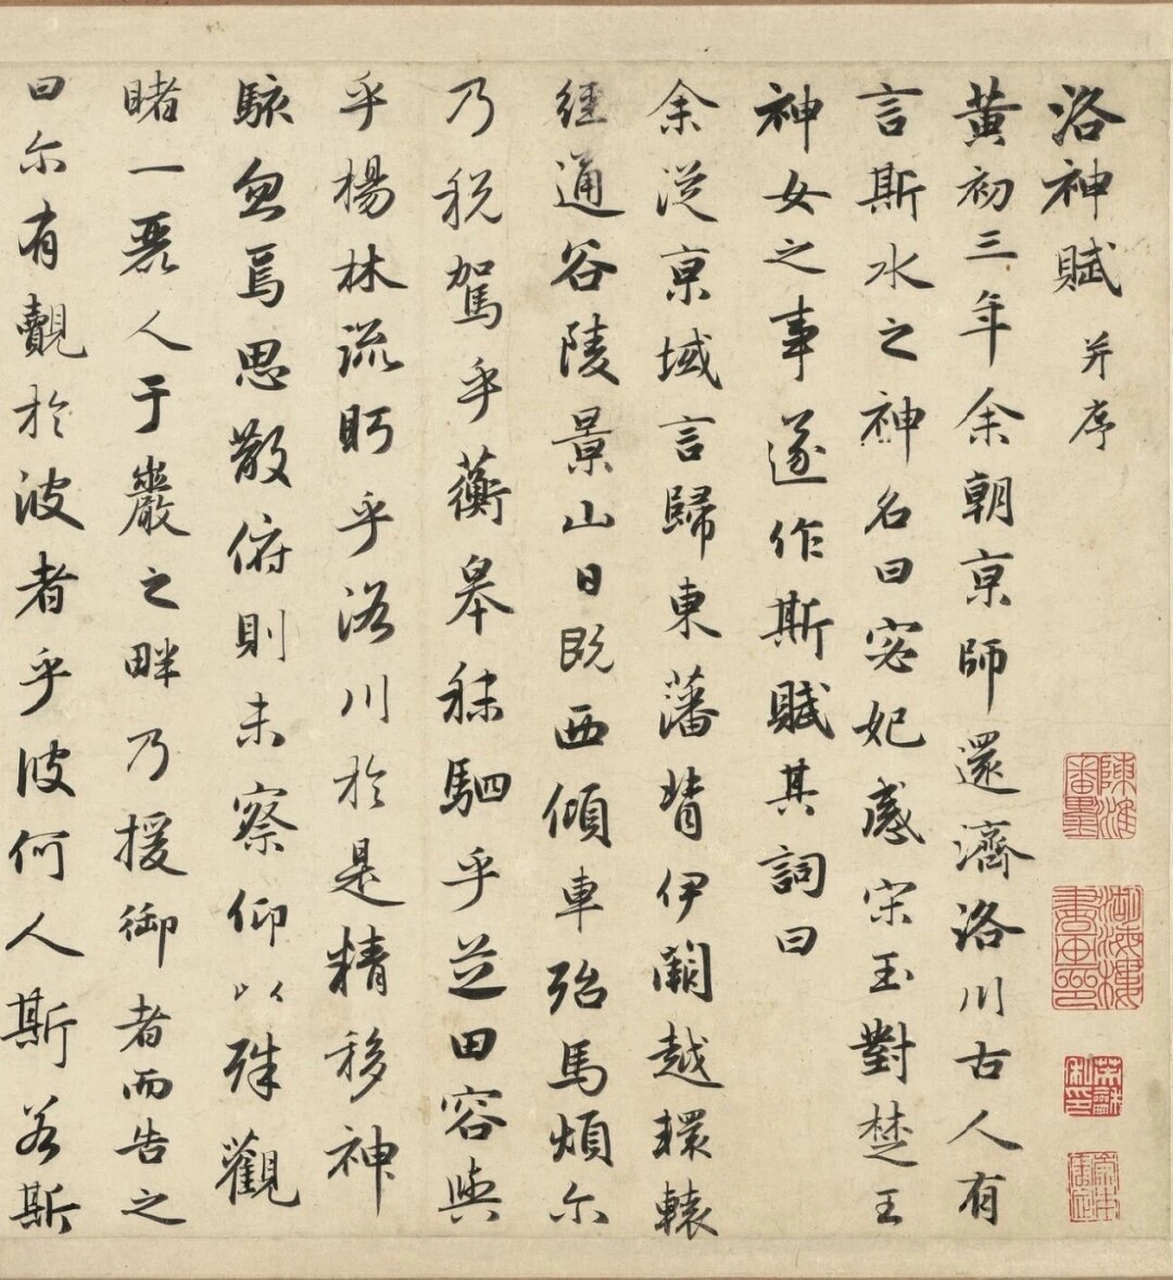 洛神賦 并序
黄初三年余朝京師還濟洛川古人有
言斯水之神名曰宓妃感宋玉對楚王
神女之事遂作斯賦其詞曰
余從京域言歸東藩背伊闕越轘轅
經通谷陵景山日既西傾車殆馬煩尓
乃税駕乎蘅皋秣駟乎芝田容與
乎楊林流眄乎洛川於是精移神
駭忽焉思散俯則未察仰以殊觀
睹一麗人于巖之畔乃援御者而告之
曰尓有覿於彼者乎彼何人斯若斯